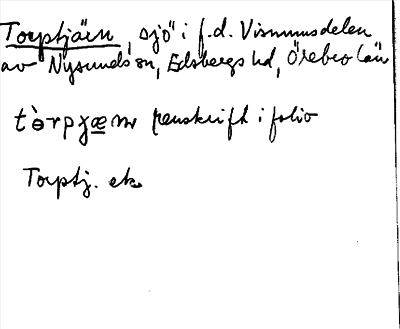 Torptjärn, sjö i f.d. Visnumsdelen
av Nysunds sn, Edsbergs hd, Örebro län
tòrpꞔæ̲ɳ renskrift i folio
Torptj. ek